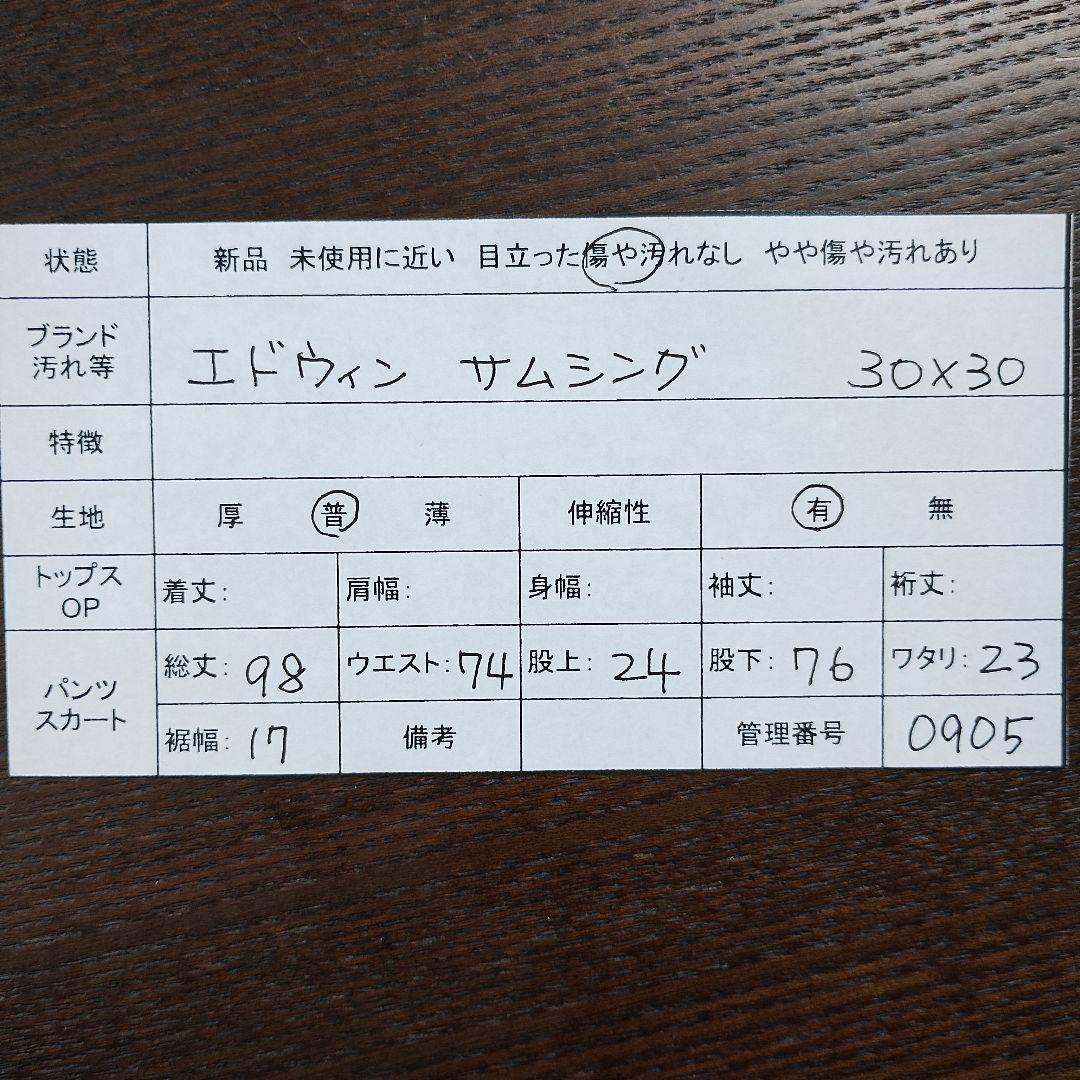 状態 新品 未使用に近い 目立った傷や汚れなし やや傷や汚れあり
ブランド
汚れ等 エドウィン サムシング 30×30
特徴
生地 厚 普 薄 伸縮性 有 無
トップス
OP 着丈: 肩幅: 身幅: 袖丈: 裄丈:
パンツ
スカート 総丈: 98 ウエスト: 74 股上: 24 股下: 76 ワタリ: 23
裾幅: 17 備考 管理番号 0905